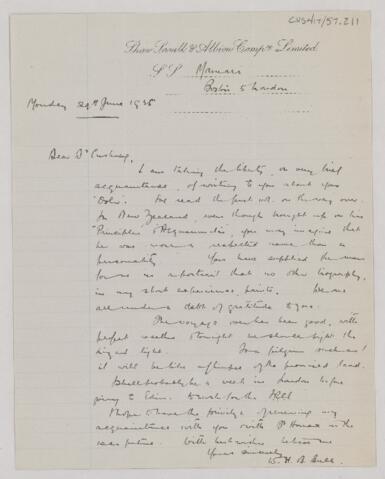 CUSH/17/57.211
Shaw Savill & Albion Compy Limited.
S S Mamari
Boston to London
Monday 29th June 1936
Dear Dr Cushing,
I am taking the liberty, on very brief
acquaintance, of writing to you about your
'Osler'. I've read the first vol. on the way over.
In New Zealand, even though brought up on his
'Principles' & 'Aequanimitas', you may imagine that
he was more a respected name than a
personality. You have supplied the man
for us as no other biography,
in my short experience, paints. We are
all under a debt of gratitude to you.
The voyage over has been good, with
perfect weather & tonight we should sight the
first light. For a pilgrim such as I
it will be like a glimpse of the promised land.
I shall probably be a week in London before
going to Edin. to work for the FRCS
I hope to have the privilege of renewing my
acquaintance with you & with Dr Horrax in the
near future. With best wishes, believe me
Yours sincerely
W. H. B. Bull.